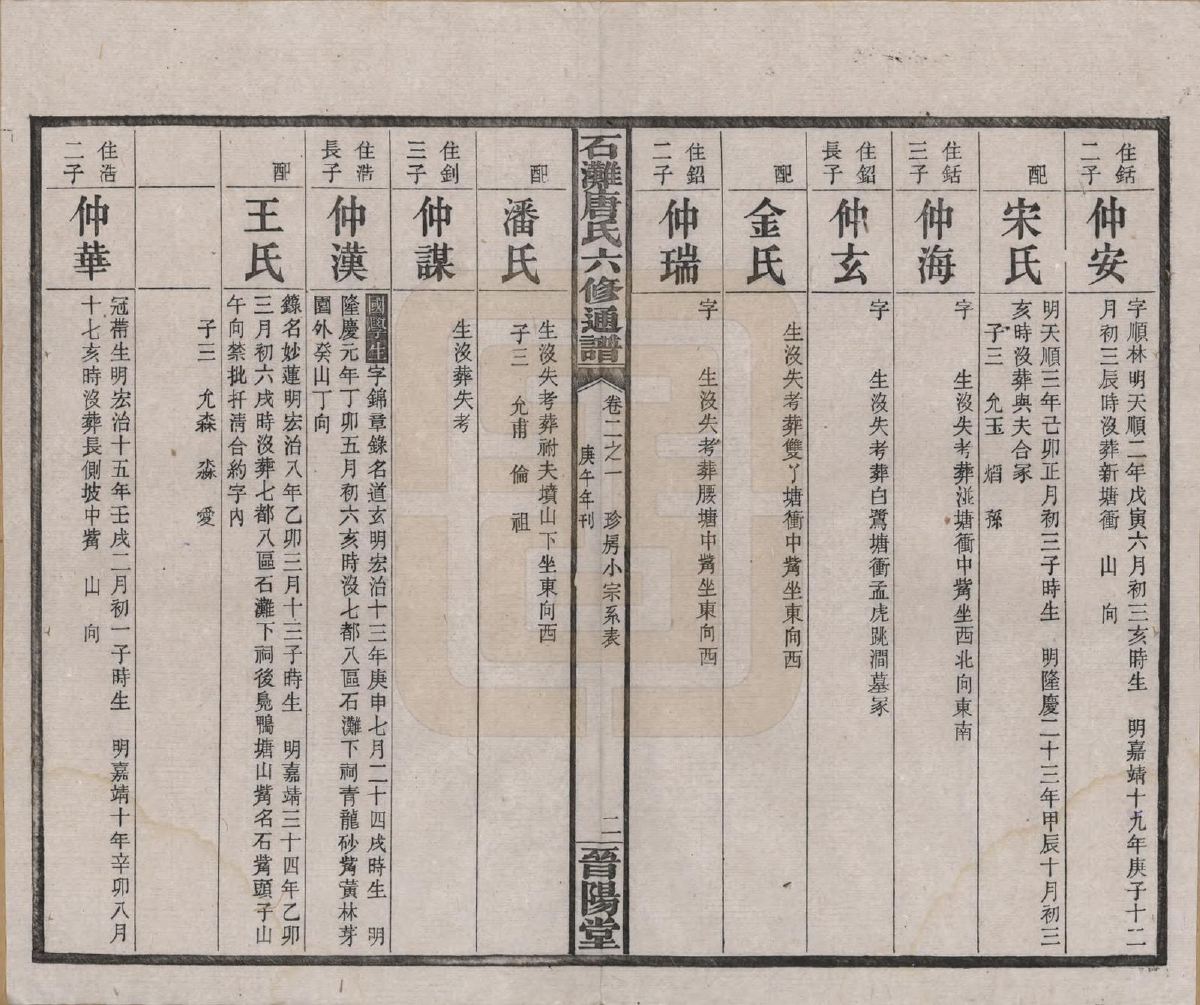 住銛
二子
仲安
字順林明天順二年戊寅六月初三亥時生　明嘉靖十九年庚子十二
月初三辰時沒葬新塘衝　山　向
配
宋氏
明天順三年己卯正月初三子時生　明隆慶二十三年甲辰十月初三
亥時沒葬與夫合冢
子三　允玉　熖　孫
住銛
三子
仲海
字　生沒失考葬塘衝中觜坐西北向東南
住鉊
長子
仲玄
字　生沒失考葬白鷺塘衝孟虎跳澗墓冢
配
金氏
生沒失考葬雙丫塘衝中觜坐東向西
住鉊
二子
仲瑞
字　生沒失考葬腰塘中觜坐東向西
石灘唐氏六修通譜
卷二之一　珍房小宗系表
庚午年刊
二
晉陽堂
配
潘氏
生沒失考葬祔夫墳山下坐東向西
子三　允甫　倫　祖
住釗
三子
仲謀
生沒葬失考
住浩
長子
仲漢
國學生字錦章錄名道玄明宏治十三年庚申七月二十四戌時生　明
隆慶元年丁卯五月初六亥時沒七都八區石灘下祠青龍砂觜黃林芽
園外癸山丁向
配
王氏
錄名妙蓮明宏治八年乙卯三月十三子時生　明嘉靖三十四年乙卯
三月初六戌時沒葬七都八區石灘下祠後鳧鴨塘山觜名石觜頭子山
午向禁批扦清合約字內
子三　允森　淼　愛
住浩
二子
仲華
冠帶生明宏治十五年壬戌二月初一子時生　明嘉靖十年辛卯八月
十七亥時沒葬長側坡中觜　山　向